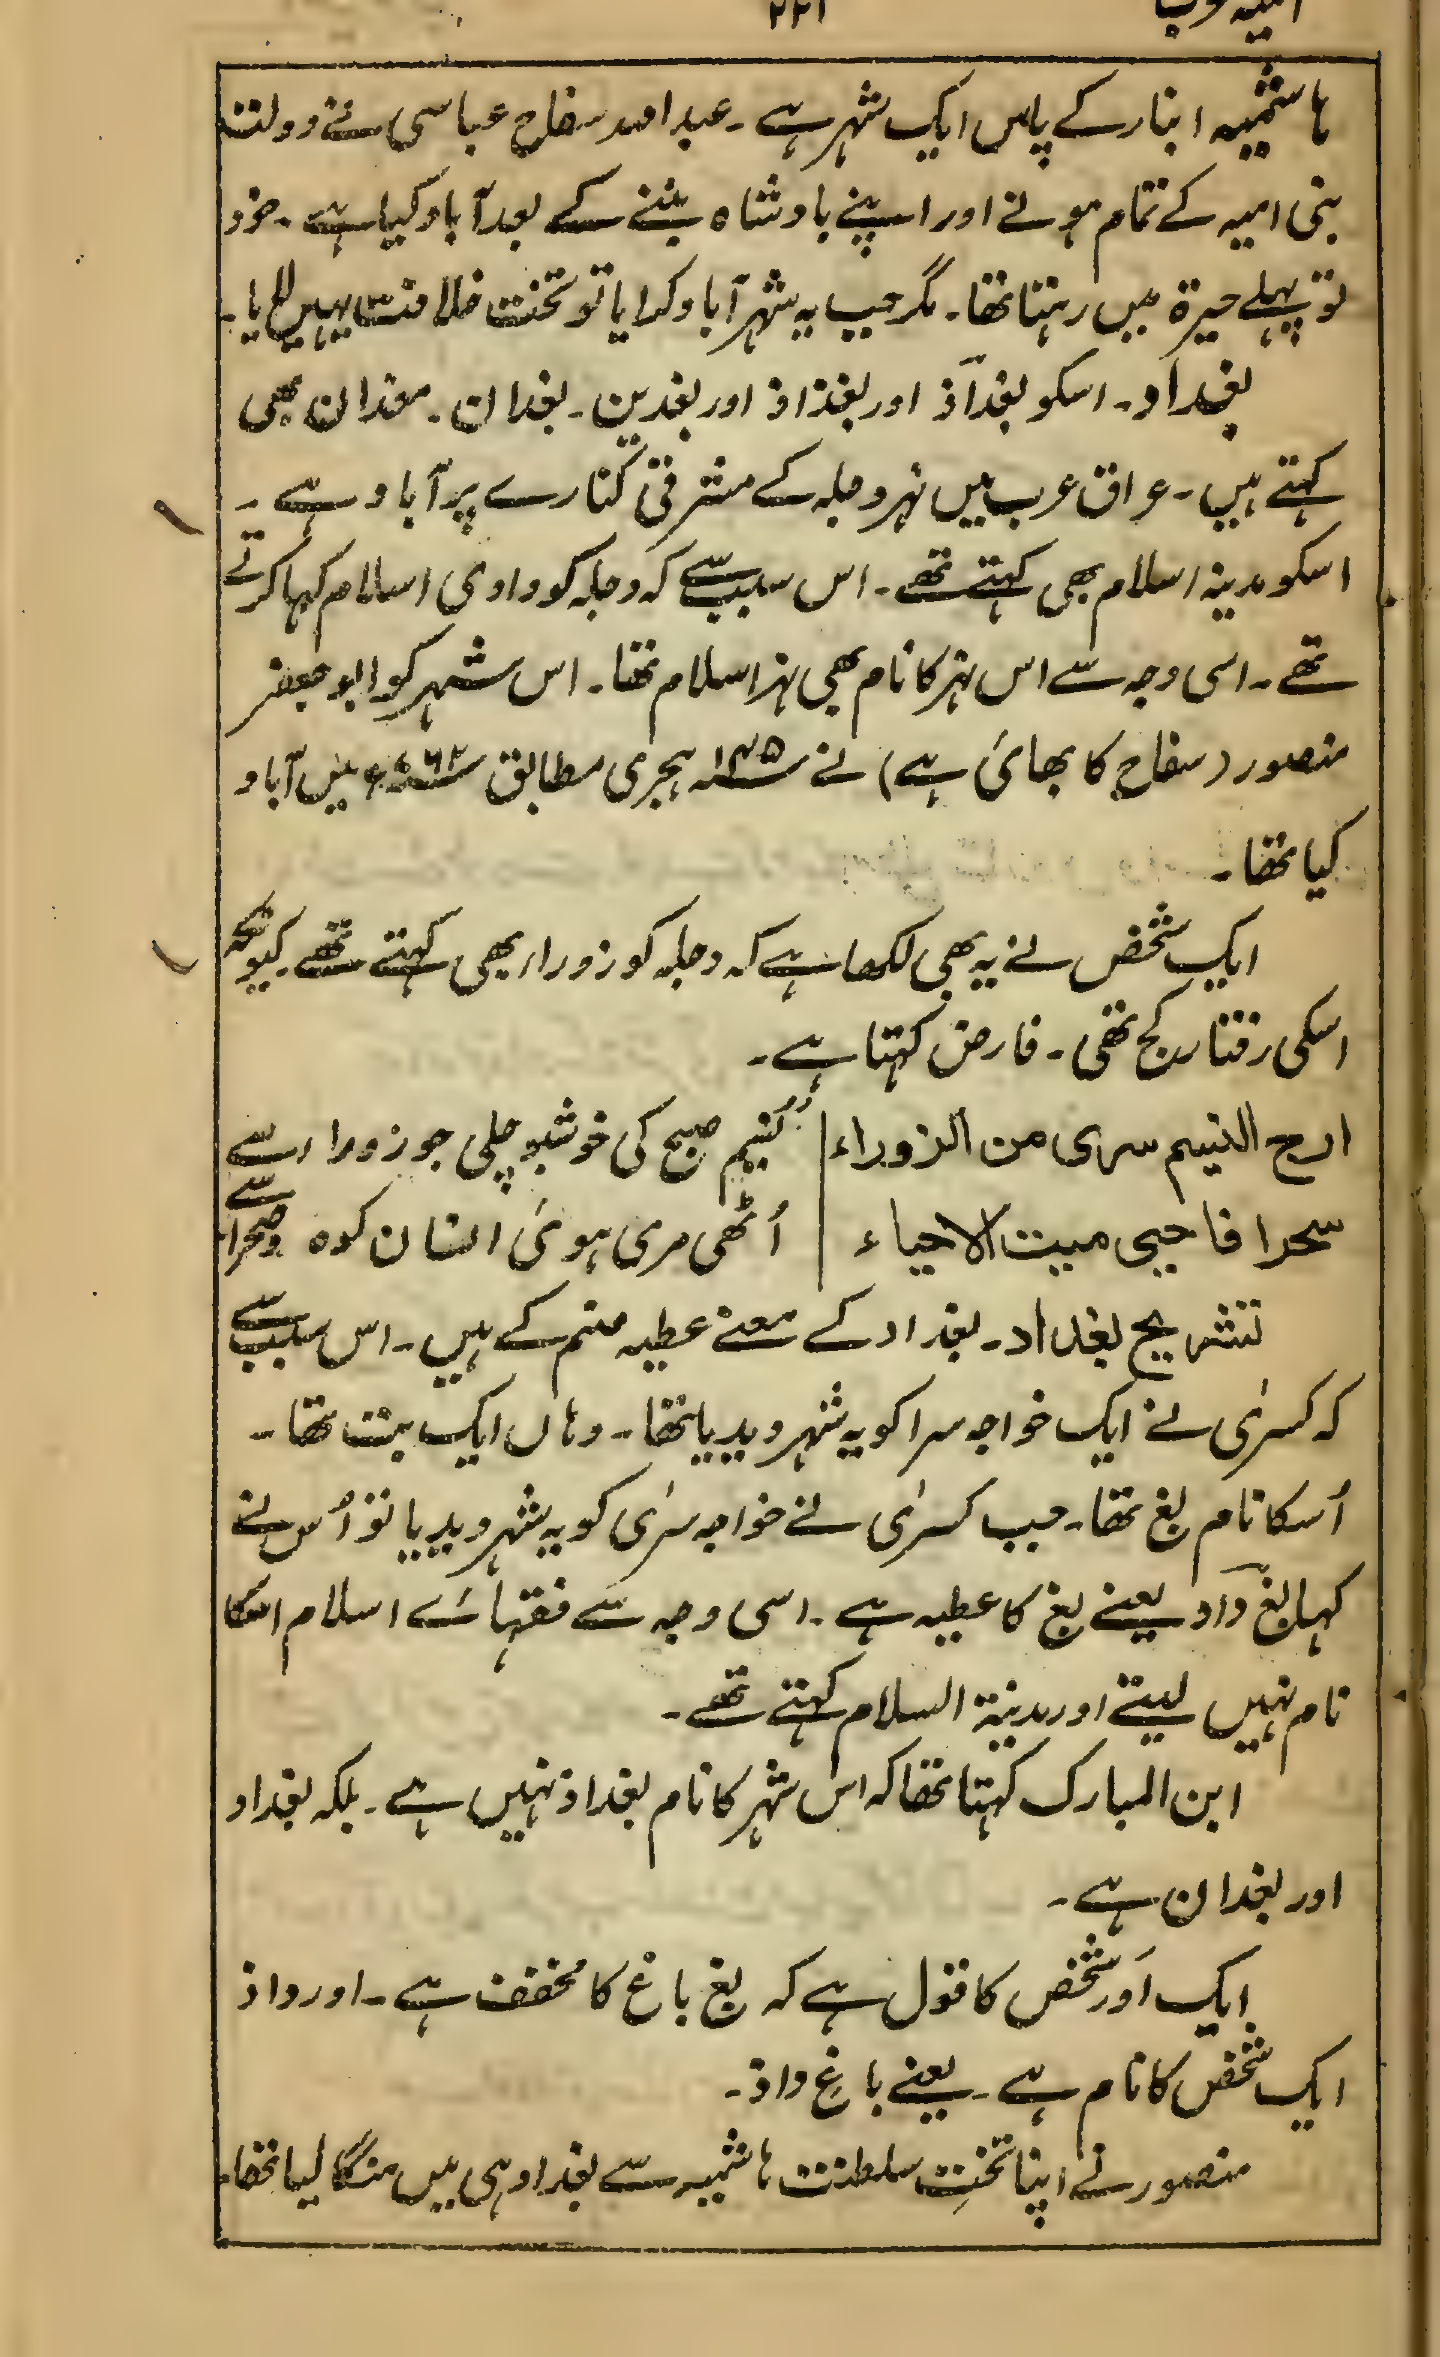 ۲۲۱
ہاشمیہ انبار کے پاس ایک شہر ہے۔ عبد اللہ سفاح عباسی نے دولت
بنی امیہ کے تمام ہونے اور اپنے بادشاہ بننے کے بعد آباد کیا ہے۔ خود
تو پہلے حیرۃ میں رہتا تھا۔ مگر جب یہ شہر آباد کرایا تو تخت خلافت یہیں لایا۔
بغداد۔ اسکو بغداذ اور بغذاذ اور بغدین۔ بغدان۔ مغدان بھی
کہتے ہیں۔ عراق عرب میں نہر دجلہ کے مشرقی کنارے پر آباد ہے۔
اسکو مدینہ اسلام بھی کہتے تھے۔ اس سبب سے کہ دجلہ کو وادی اسلام کہا کرتے
تھے۔ اسی وجہ سے اس نہر کا نام بھی نہر اسلام تھا۔ اس شہر کو ابو جعفر
منصور (سفاح کا بھائی ہے) نے ۱۴۵؁ ہجری مطابق ۷۶۲؁ء میں آباد
کیا تھا۔
ایک شخص نے یہ بھی لکھا ہے کہ دجلہ کو زوراء بھی کہتے تھے کیونکہ
اسکی رفتار کج تھی۔ فارض کہتا ہے۔
ارج النسیم سری من الزوراء | نسیم صبح کی خوشبو چلی جو زوراء سے
سحرا فاحیی میت الاحیاء | اُٹھی مری ہوئی انسان کوہ وصحرا سے
تشریح بغداد۔ بغداد کے معنے عطیہ صنم کے ہیں۔ اس سبب سے
کہ کسریٰ نے ایک خواجہ سرا کو یہ شہر دیدیا تھا۔ وہاں ایک بت تھا۔
اُسکا نام بغ تھا۔ جب کسریٰ نے خواجہ سرٰی کو یہ شہر دیدیا تو اُس نے
کہا بغ داد یعنے بغ کا عطیہ ہے۔ اسی وجہ سے فقہائے اسلام اسکا
نام نہیں لیتے اور مدینۃ السلام کہتے تھے۔
ابن المبارک کہتا تھا کہ اس شہر کا نام بغداذ نہیں ہے۔ بلکہ بغداد
اور بغدان ہے۔
ایک اَور شخص کا قول ہے کہ بغ باغ کا مخفف ہے۔ اور داذ
ایک شخص کا نام ہے۔ یعنے باغِ داذ۔
منصور نے اپنا تختِ سلطنت ہاشمیہ سے بغداد ہی میں منگا لیا تھا۔